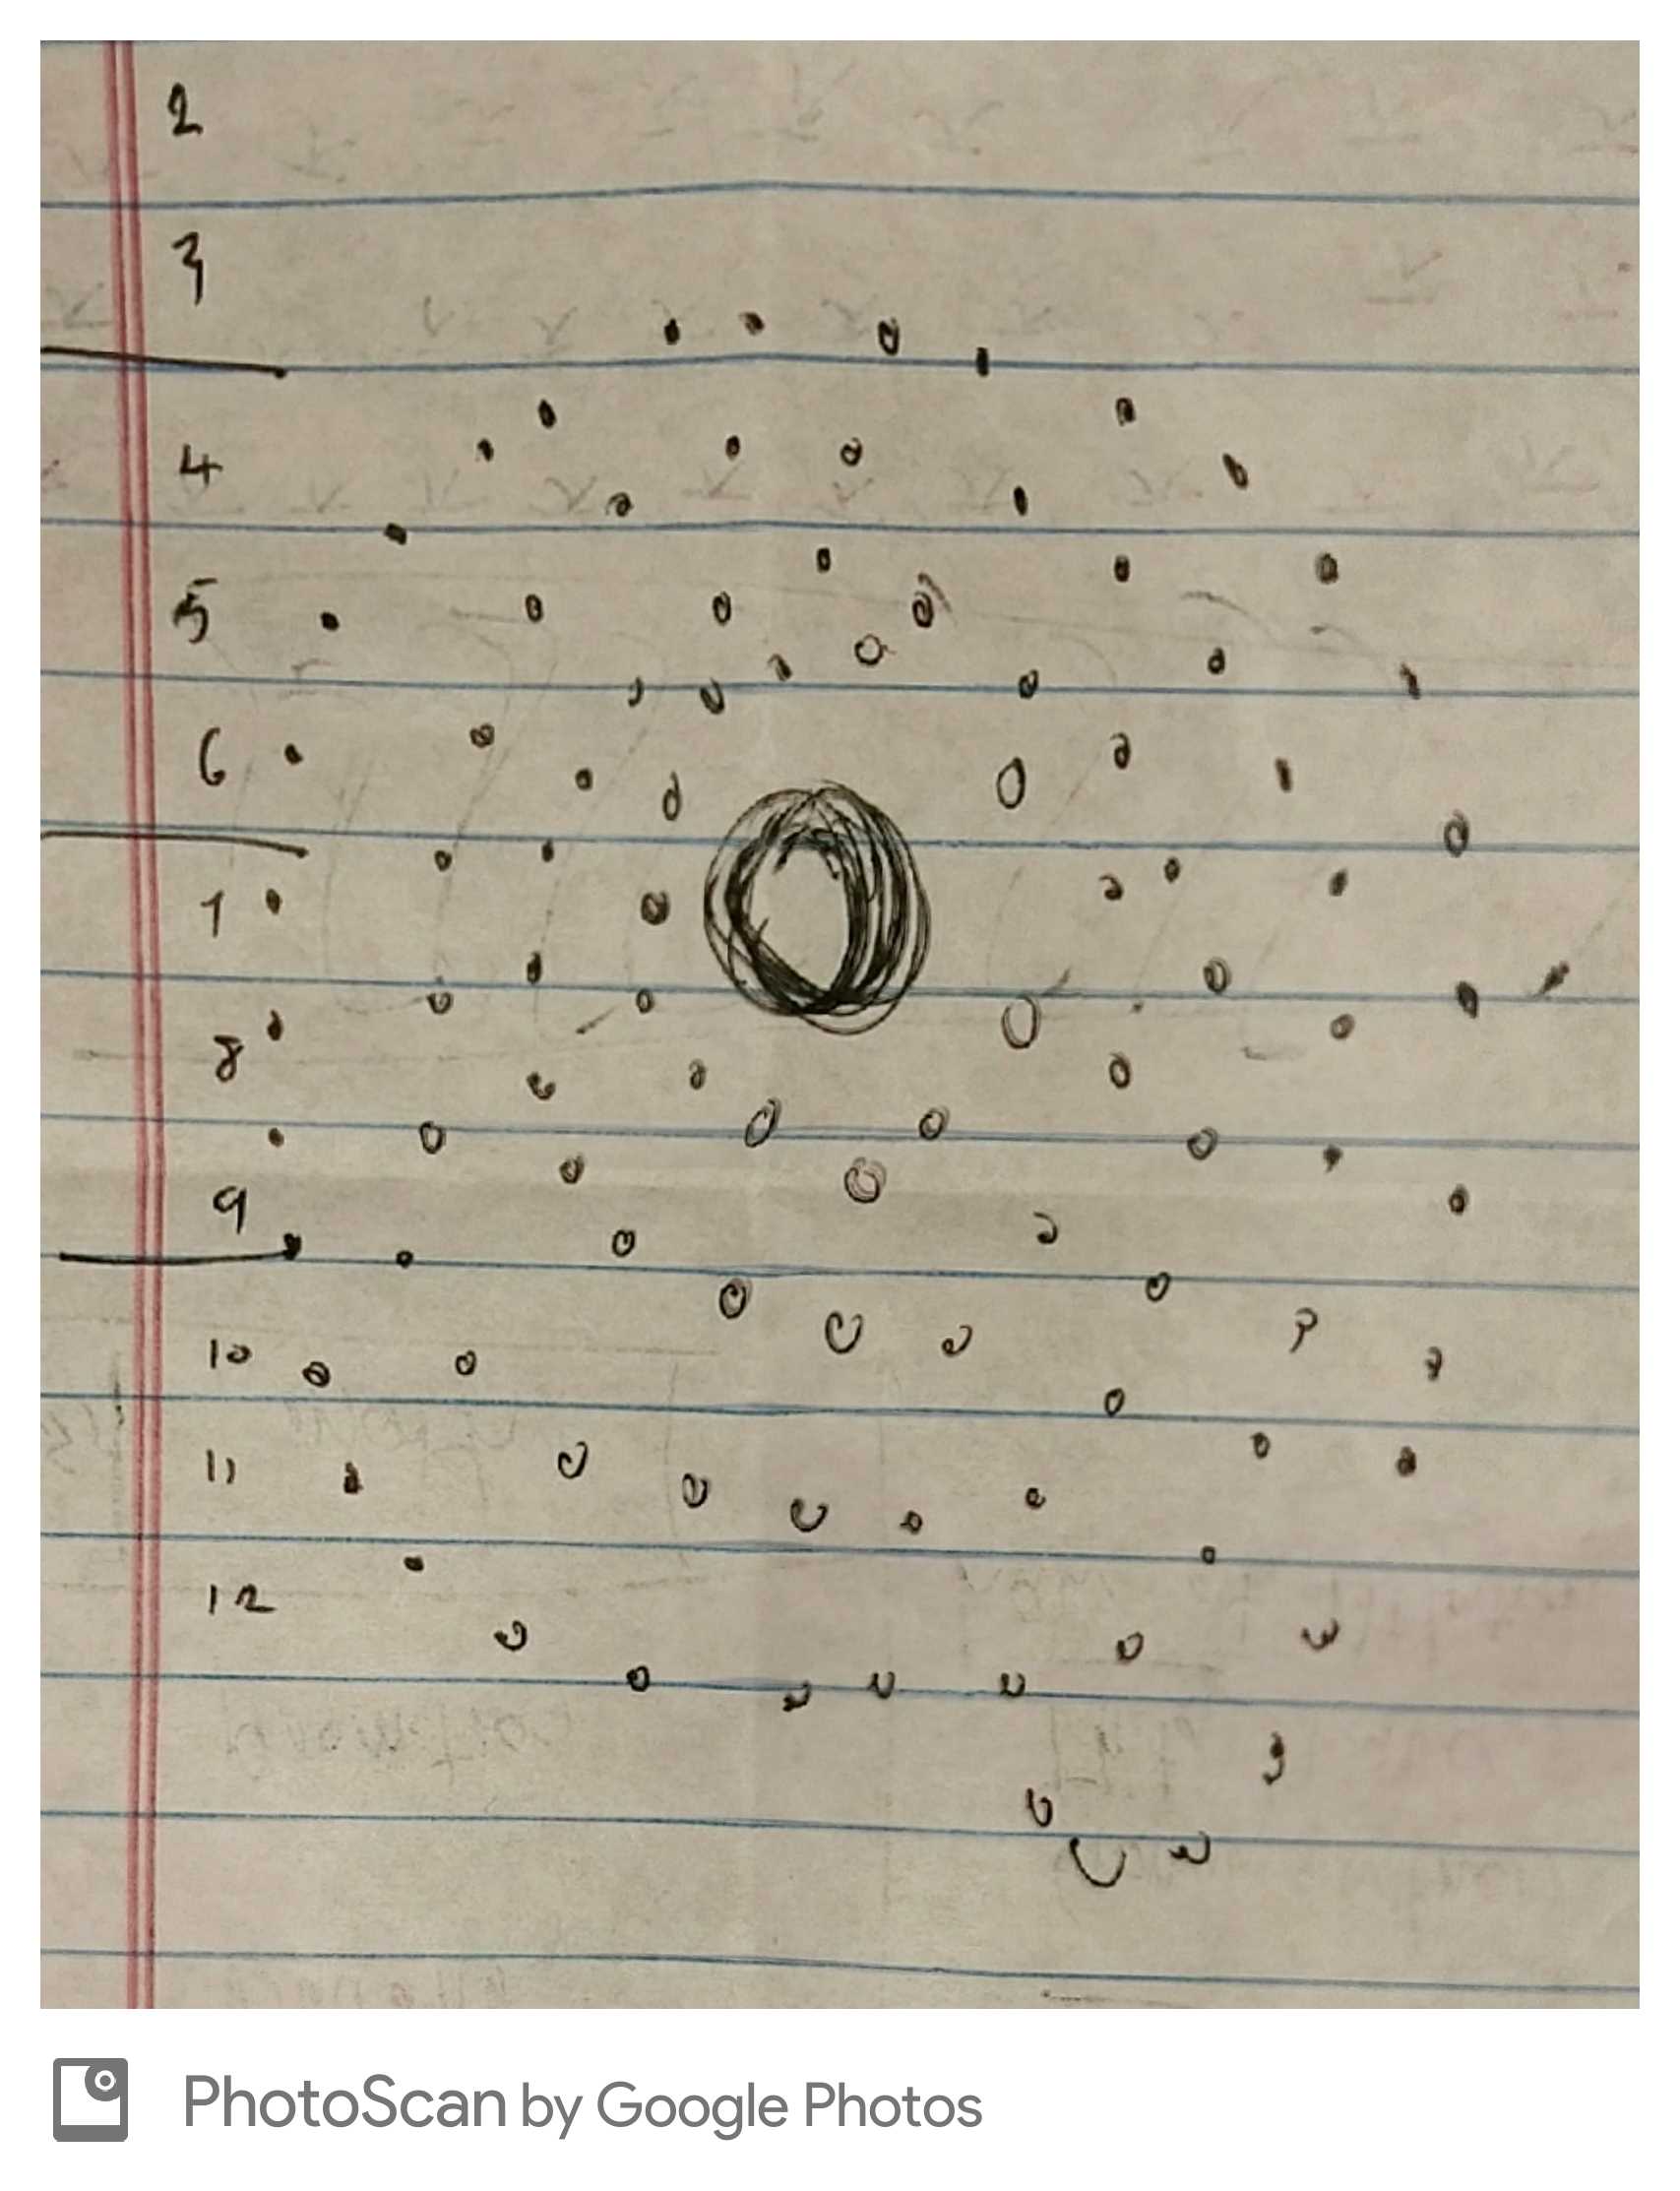 2
3
4
5
6
7
8
9
10
11
12
PhotoScan by Google Photos